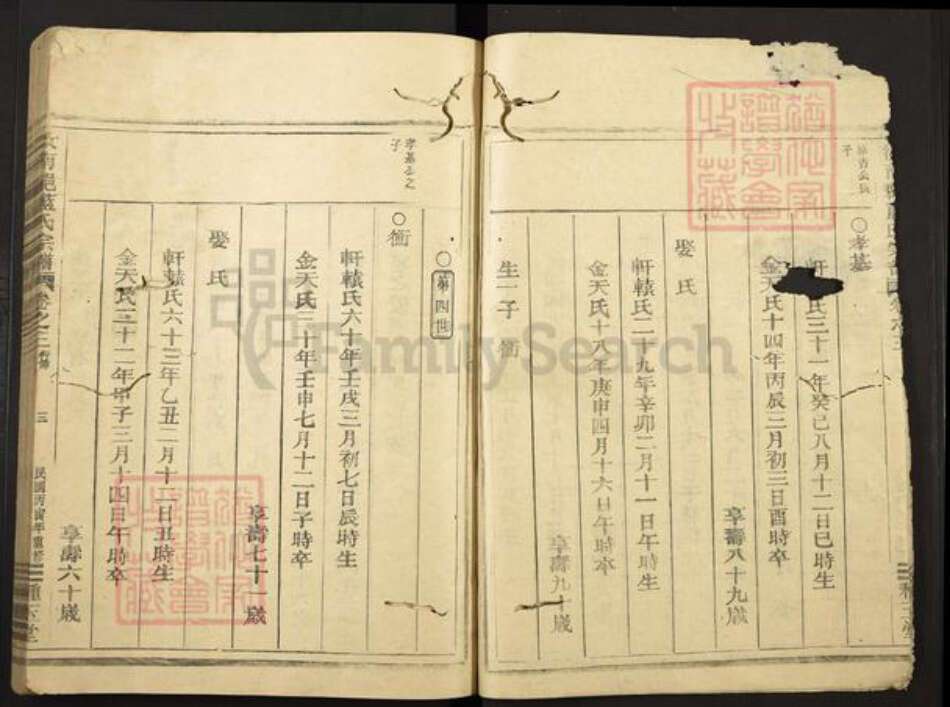 子
○孝基
氏三十一年癸巳八月十二日巳時生
金天氏十四年丙辰三月初三日酉時卒
享壽八十九歲
娶氏
軒轅氏二十九年辛卯二月十一日午時生
金天氏十八年庚申四月十六日午時卒
享壽九十歲
生一子 衝
孝基公之
子
○第四世
○衝
軒轅氏六十年壬戌三月初七日辰時生
金天氏二十年壬申七月十二日子時卒
享壽七十一歲
娶氏
軒轅氏六十三年乙丑二月十一日丑時生
金天氏二十二年甲子三月十四日午時卒
享壽六十歲
氏宗譜
卷之二
三
民國丙寅年重修
FamilySearch